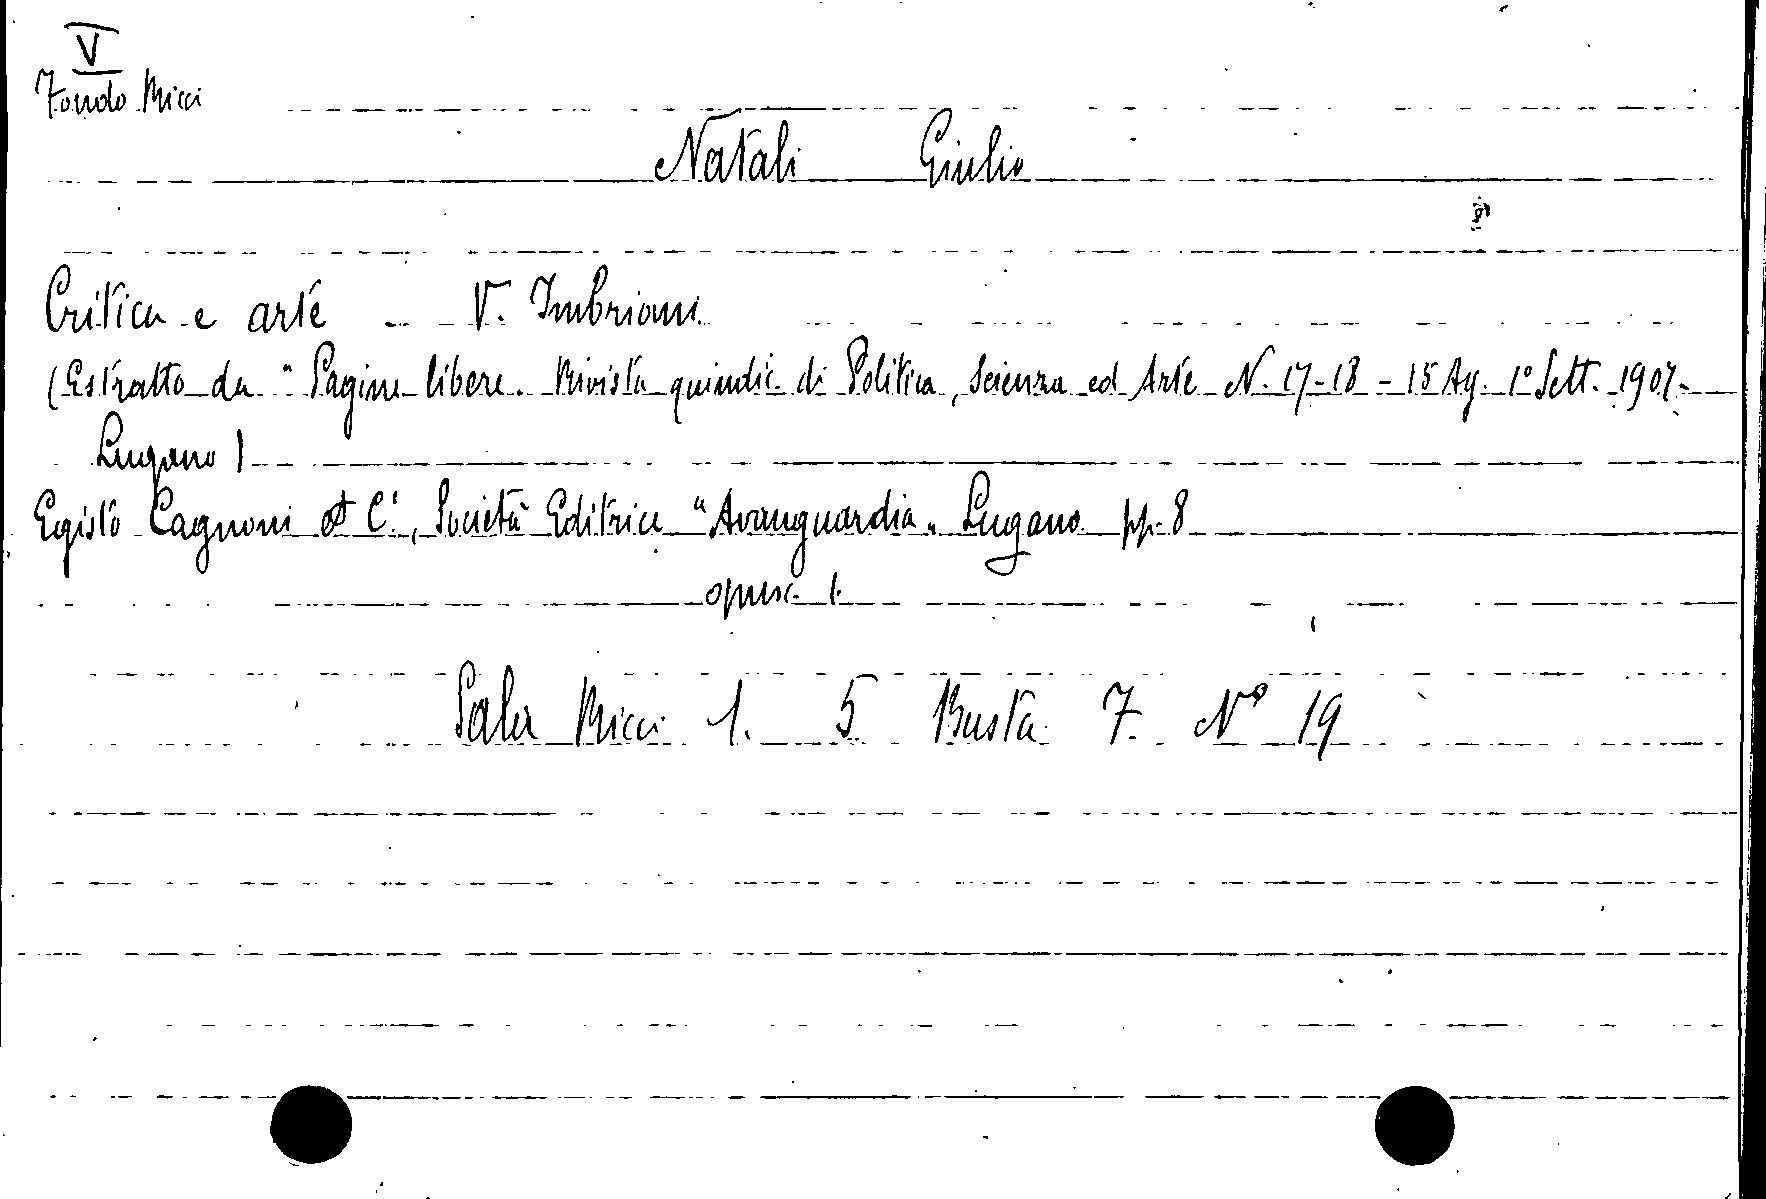 V
Fondo Micci
Natali Giulio
Critica e arte - V. Imbriani.
(Estratto da "Pagine libere. Rivista quindic. di Politica, Scienza ed Arte N. 17-18 - 15 Ag. 1° Sett. 1907-
Lugano)
Egisto Cagnoni & C.i, Società Editrice "Avanguardia" Lugano pp. 8
opusc. 1.
Sala Micci 1. 5 Busta 7. N° 19